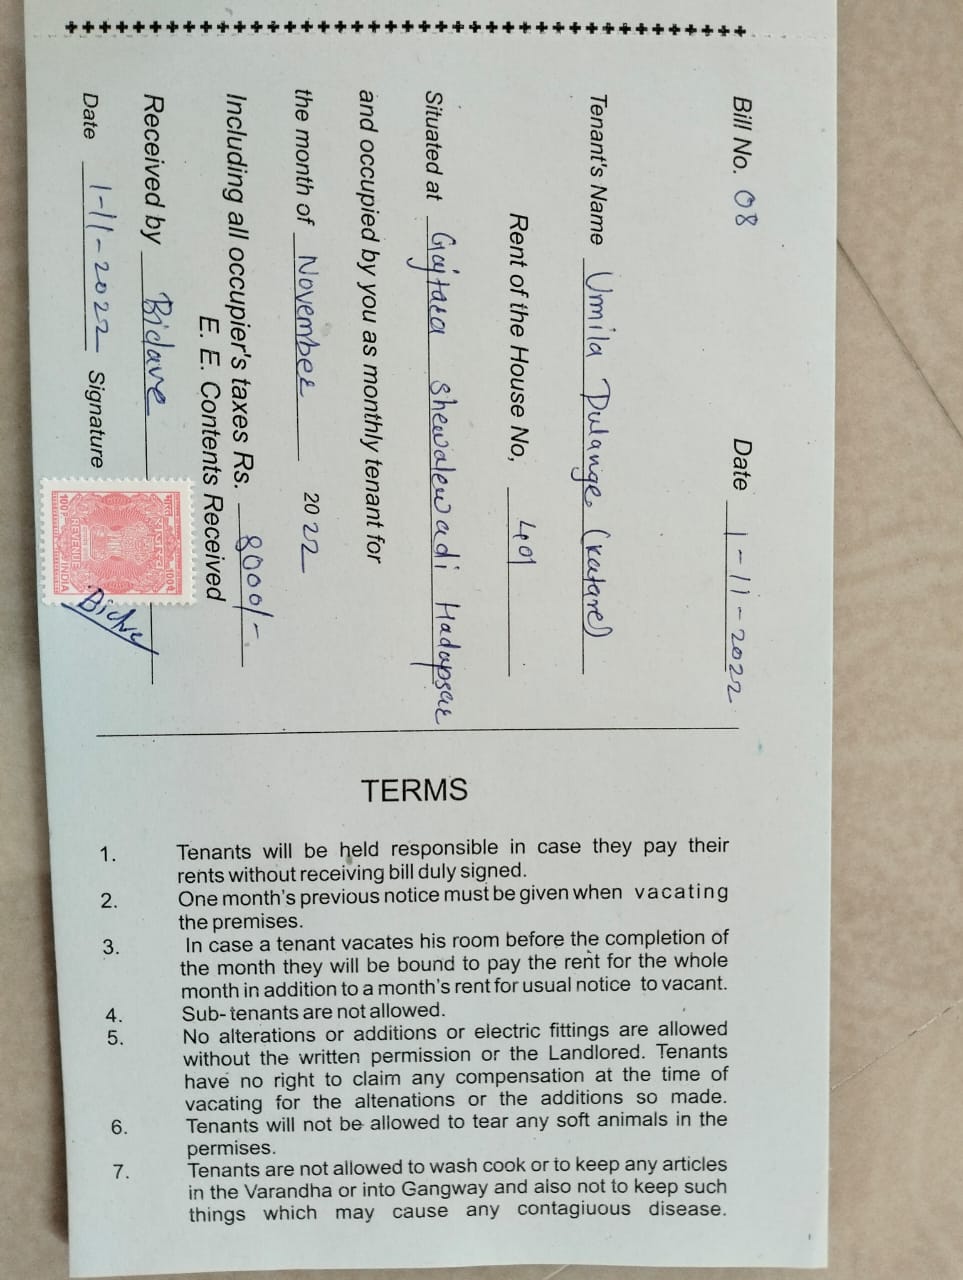 Bill No. 08 Date 1-11-2022
Tenant's Name Urmila Dulange (Katare)
Rent of the House No, 401
Situated at Gajtara Shewalewadi Hadapsar
and occupied by you as monthly tenant for
the month of November 2022
Including all occupier's taxes Rs. 8000/-
E. E. Contents Received
Received by
Date 1-11-2022 Signature
REVENUE
INDIA
TERMS
1. Tenants will be held responsible in case they pay their
rents without receiving bill duly signed.
2. One month's previous notice must be given when vacating
the premises.
3. In case a tenant vacates his room before the completion of
the month they will be bound to pay the rent for the whole
month in addition to a month's rent for usual notice to vacant.
4. Sub- tenants are not allowed.
5. No alterations or additions or electric fittings are allowed
without the written permission or the Landlored. Tenants
have no right to claim any compensation at the time of
vacating for the altenations or the additions so made.
6. Tenants will not be allowed to tear any soft animals in the
permises.
7. Tenants are not allowed to wash cook or to keep any articles
in the Varandha or into Gangway and also not to keep such
things which may cause any contagiuous disease.